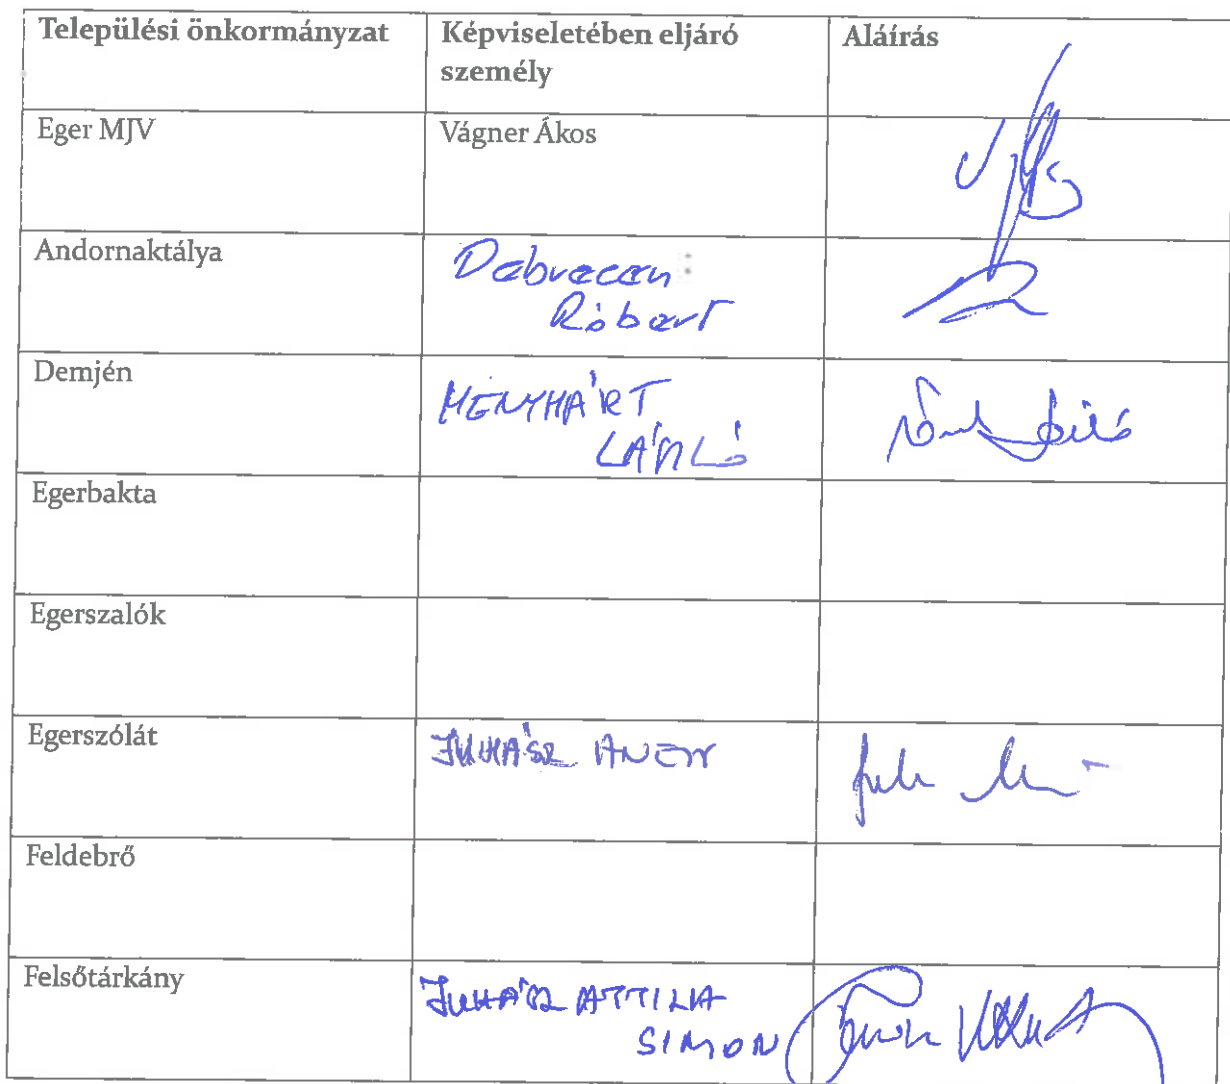 Települési önkormányzat
Képviseletében eljáró
személy
Aláírás
Eger MJV
Vágner Ákos
Andornaktálya
Debreceni
Róbert
Demjén
MENYHÁRT
LÁSZLÓ
Egerbakta
Egerszalók
Egerszólát
JUHÁSZ
Feldebrő
Felsőtárkány
JUHÁSZ ATTILA
SIMON